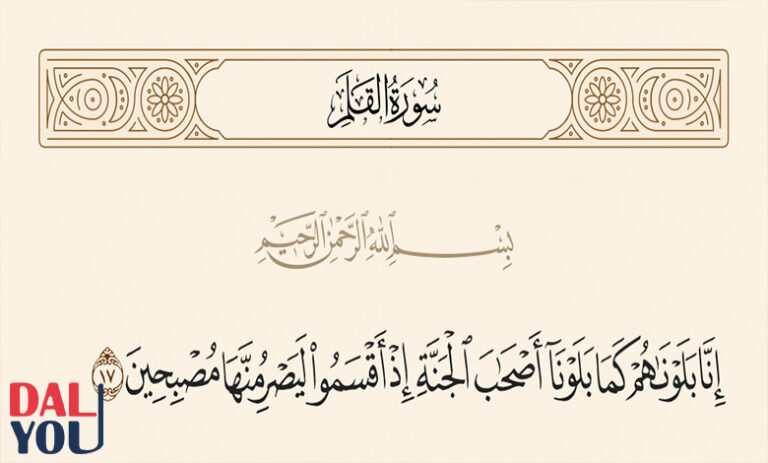 سُورَةُ القَلَمِ
بِسْمِ ٱللَّهِ ٱلرَّحْمَٰنِ ٱلرَّحِيمِ
إِنَّا بَلَوْنَٰهُمْ كَمَا بَلَوْنَآ أَصْحَٰبَ ٱلْجَنَّةِ إِذْ أَقْسَمُوا۟ لَيَصْرِمُنَّهَا مُصْبِحِينَ ١٧
DAL
YOU